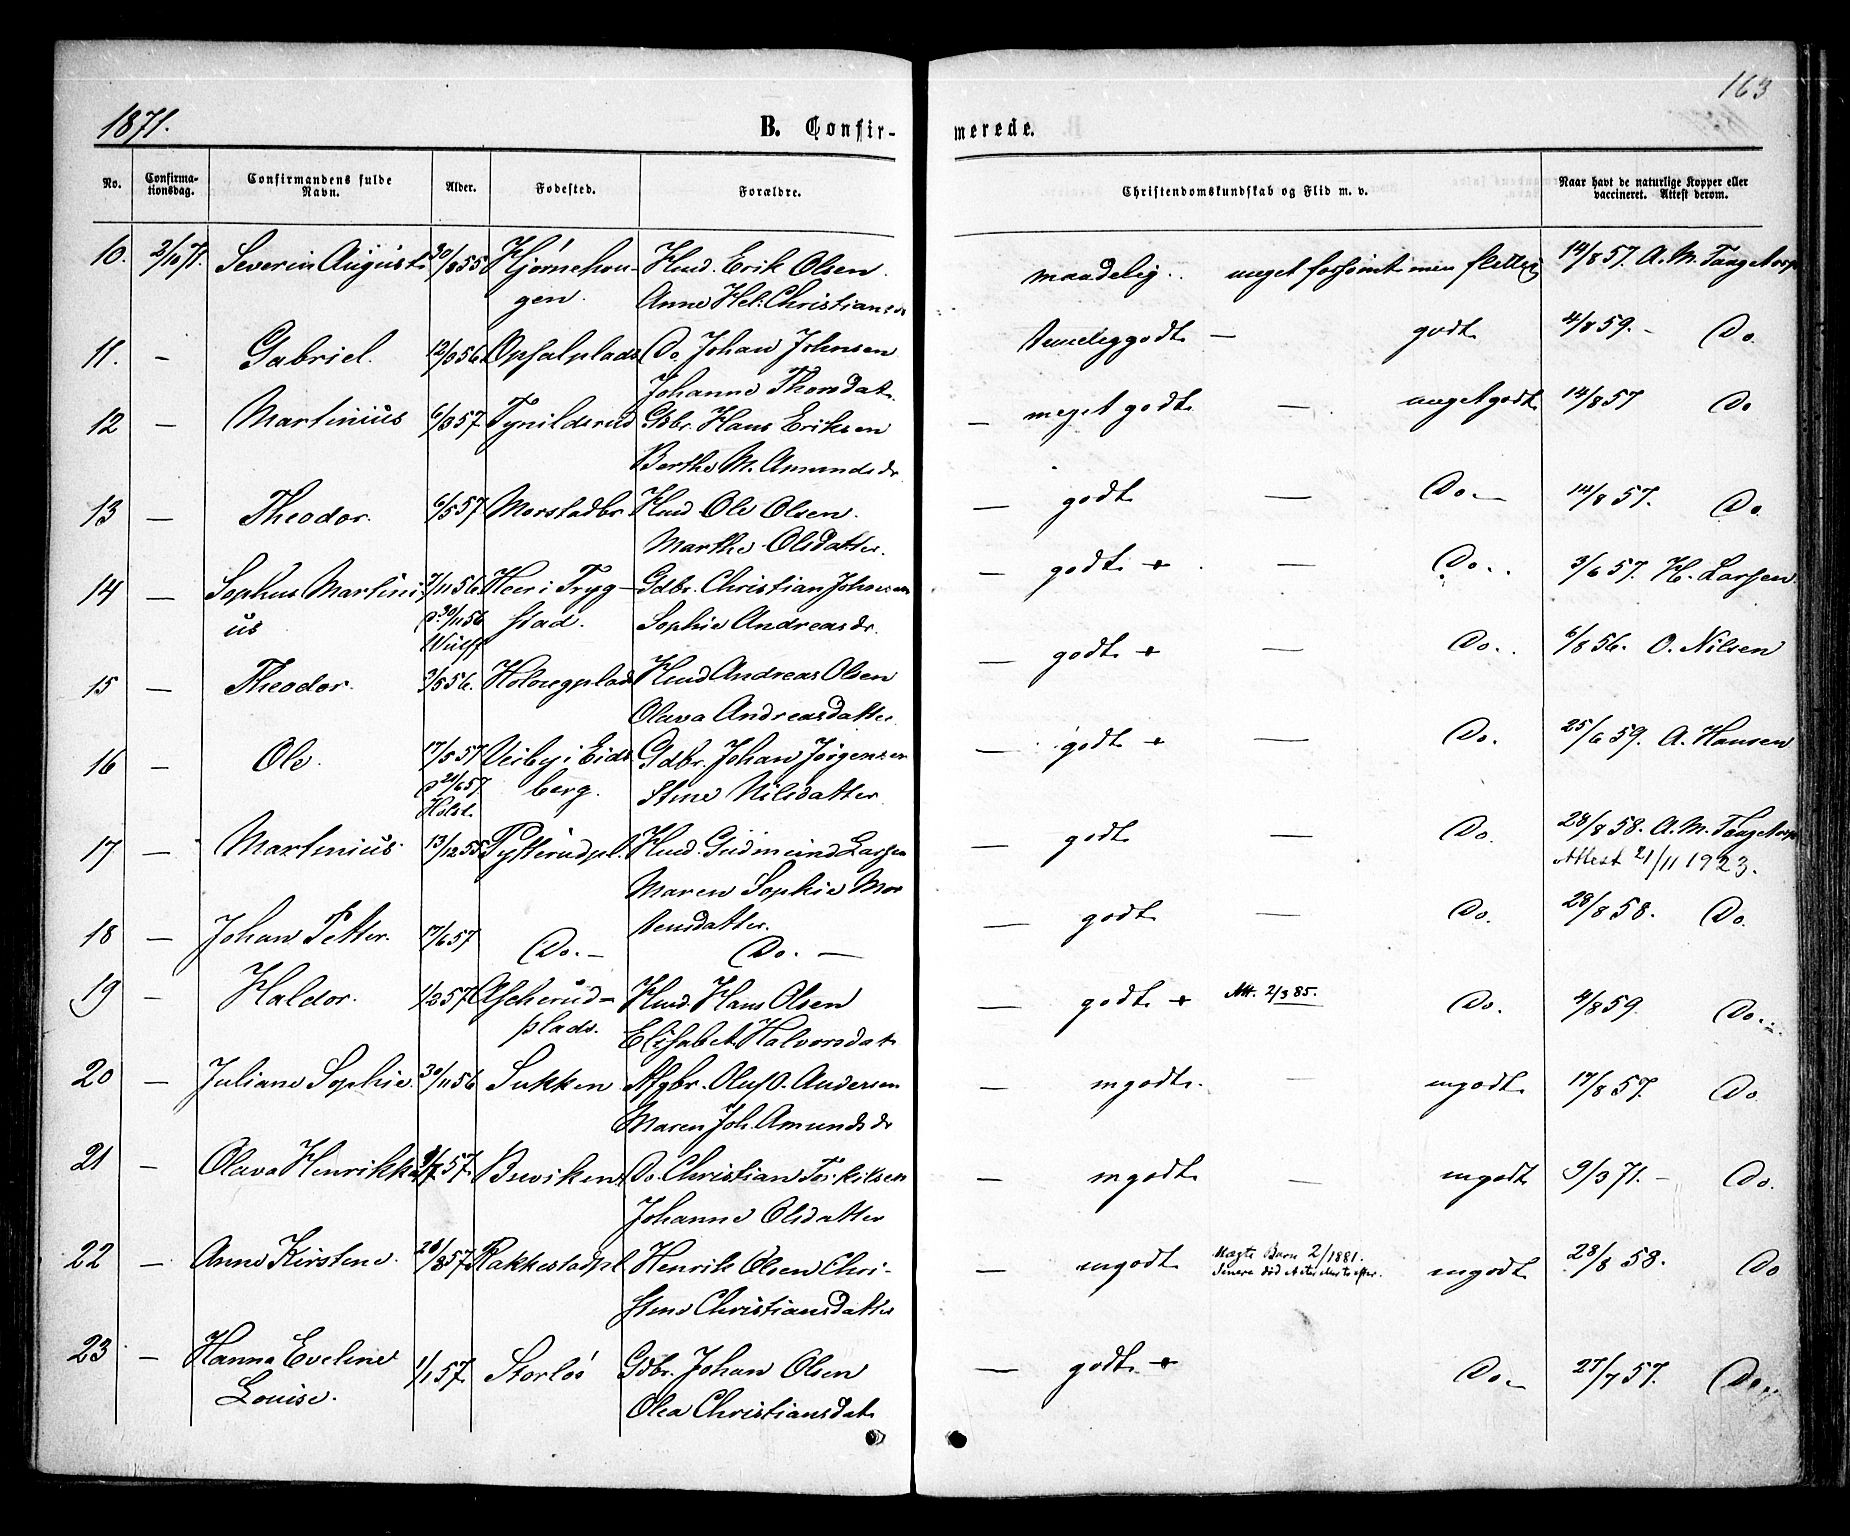 163
1871.
B. Confir-
merede.
No.
Confirma-
tionsdag.
Confirmandens fulde
Navn.
Alder.
Fodested.
Forældre.
Christendomskundskab og Flid m. v.
Naar havt de naturlige Kopper eller
vaccineret. Attest derom.
10. 2/10 71. Severin August 30/8 55 Hjørnehou- Husmd. Erik Olsen. maadelig. meget forsømt men flittig 14/8 57. A. M. Tangetorp
gen. Anne Hel. Christiansdr
11. — Gabriel. 12/9 56. Opsalplads Do. Johan Johnsen temelig godt — godt 4/8 59. - Do
Johanne Thorsdat.
12 — Martinius 6/3 57 Tynildsrud Gdbr. Hans Eriksen — meget godt — meget godt 14/8 57 Do
Berthe M. Amundsdr
13 — Theodor. 6/5 57 Morstadbr. Husmd Ole Olsen. — godt — Do — 14/8 57. Do
Marthe Olsdatter.
14 — Sophus Martini 7/11 56 Heer i Tryg- Gdbr. Christian Johnsen — godt + — Do.. 3/6 57. H. Larsen.
us d. 30/11 56 stad. Sophie Andreasdr.
15 — Theodor. 3/5 56. Husmd Andreas Olsen — godt + — Do.. 6/8 56. O. Nilsen
Olava Andreasdatter
16 — Ole. 17/5 57 Veiby i Eids Gdbr. Johan Jørgensen — godt + — Do. 25/6 59. A. Hansen
d 21/6 57 berg. Stine Nilsdatter
Holst.
17 — Martinius 13/12 55 Husmd. Gudmund Larsen — godt — Do. 28/8 58. A. M. Tangetorp
Attest 21/11 1923.
Maren Sophie Mor
tensdatter.
18 — Johan Petter. 17/6 57 Do. — Do. — — godt — Do. 28/8 58. Do.
19 — Haldor. 1/3 57 Ascherud- Husmd. Hans Olsen — godt + Att. 2/3 85. Do. 4/8 59. Do..
plads. Elisabet Halvorsdat
20 — Juliane Sophie. 30/11 56 Sukken Afgbr. Oluf O. Andersen — mgodt. — mgodt 17/8 57. Do
Maren Joh. Amundsdr
21 — Olava Henrikke 57. Buviken Do. Christian Torkilsen — mgodt — mgodt 9/3 71. — Do.
Johanne Olsdatter
22 — Anne Kirstine. 28/3 57 Rakkestadpl. Henrik Olsen Chri- — mgodt Uægte Barn 2/1881. mgodt 28/8 58. Do
Senere død
stine Christiansdatter
23 — Hanna Eveline 1/1 57. Storløs Gdbr. Johan Olsen — godt. + Do — 27/7 57. Do..
Louise. Olea Christiansdat.